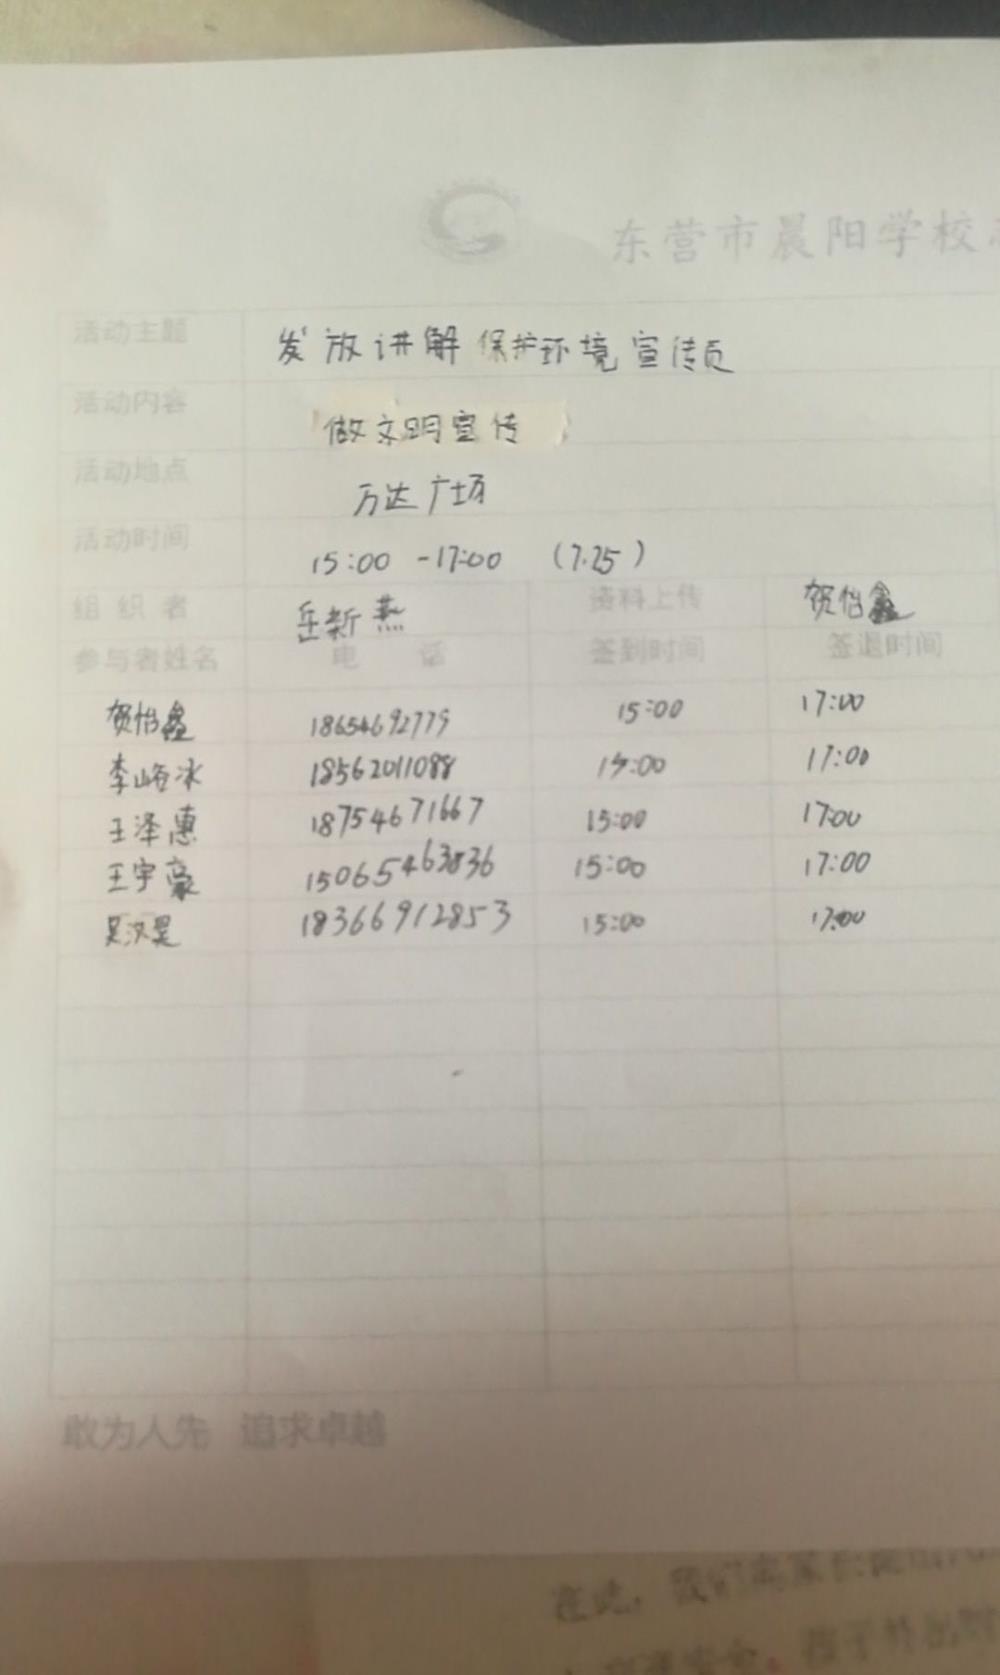 东营市晨阳学校
活动主题 发放讲解保护环境宣传页
活动内容 做文明宣传
活动地点 万达广场
活动时间 15:00 -17:00 (7.25)
组织者 岳新燕 资料上传 贺怡鑫
参与者姓名 电话 签到时间 签退时间
贺怡鑫 18654692779 15:00 17:00
李峪冰 18562011088 15:00 17:00
王泽惠 18754671667 15:00 17:00
王宇豪 15065463836 15:00 17:00
吴汉昊 18366912853 15:00 17:00
敢为人先 追求卓越
在此,我们